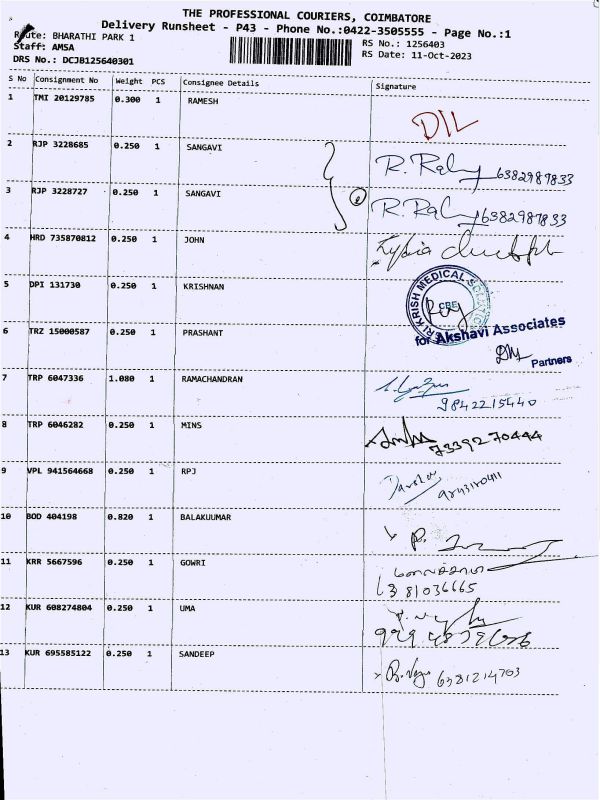 THE PROFESSIONAL COURIERS, COIMBATORE
Delivery Runsheet - P43 - Phone No.:0422-3505555 - Page No.:1
Route: BHARATHI PARK 1
Staff: AMSA
DRS No.: DCJB125640301
RS No.: 1256403
RS Date: 11-Oct-2023
S No Consignment No Weight PCS Consignee Details Signature
1 TMI 20129785 0.300 1 RAMESH DIL
2 RJP 3228685 0.250 1 SANGAVI R. 6382987833
3 RJP 3228727 0.250 1 SANGAVI R. 6382987833
4 HRD 735870812 0.250 1 JOHN
5 DPI 131730 0.250 1 KRISHNAN
SRI KRISH MEDICALS
CBE
6 TRZ 15000587 0.250 1 PRASHANT
for Akshavi Associates
Partners
7 TRP 6047336 1.080 1 RAMACHANDRAN
9842215440
8 TRP 6046282 0.250 1 MINS 7339270444
9 VPL 941564668 0.250 1 RPJ
10 BOD 404198 0.820 1 BALAKUUMAR P.
11 KRR 5667596 0.250 1 GOWRI
6381036665
12 KUR 608274804 0.250 1 UMA
13 KUR 695585122 0.250 1 SANDEEP 6381214703